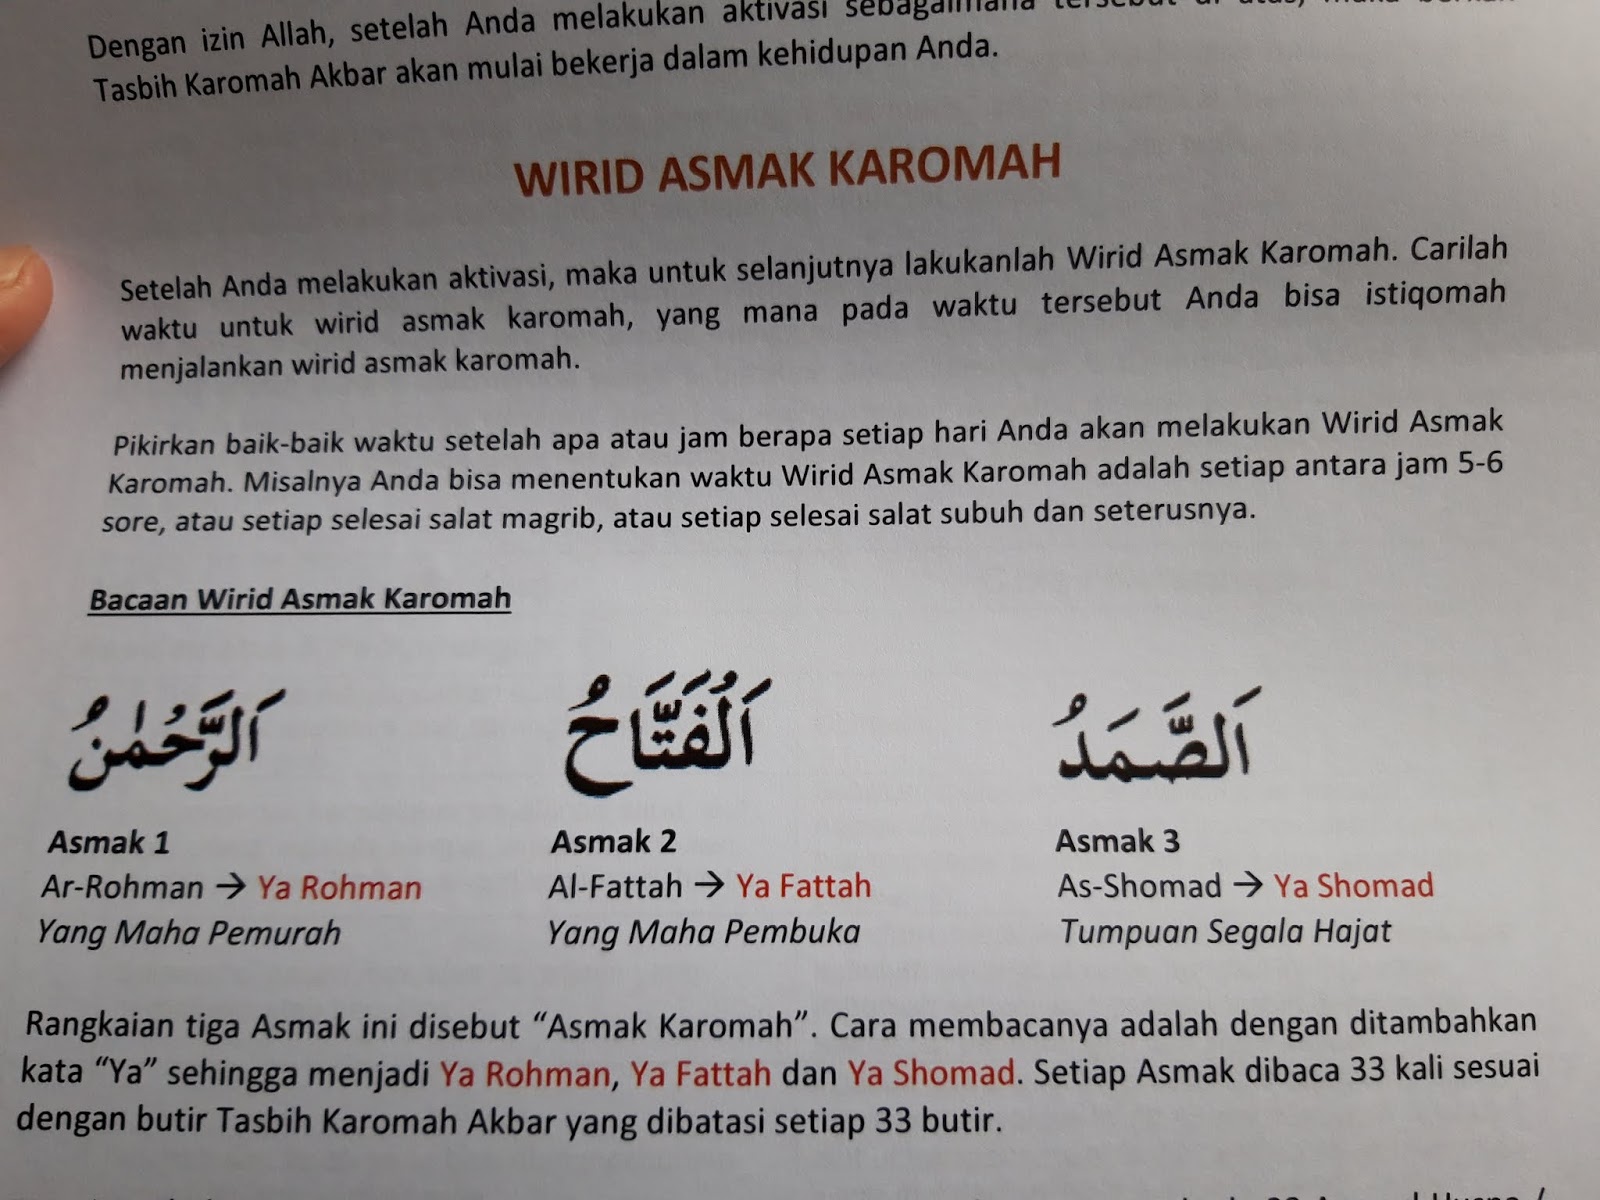 Dengan izin Allah, setelah Anda melakukan aktivasi sebagaimana tersebut di atas, maka
Tasbih Karomah Akbar akan mulai bekerja dalam kehidupan Anda.
WIRID ASMAK KAROMAH
Setelah Anda melakukan aktivasi, maka untuk selanjutnya lakukanlah Wirid Asmak Karomah. Carilah
waktu untuk wirid asmak karomah, yang mana pada waktu tersebut Anda bisa istiqomah
menjalankan wirid asmak karomah.
Pikirkan baik-baik waktu setelah apa atau jam berapa setiap hari Anda akan melakukan Wirid Asmak
Karomah. Misalnya Anda bisa menentukan waktu Wirid Asmak Karomah adalah setiap antara jam 5-6
sore, atau setiap selesai salat magrib, atau setiap selesai salat subuh dan seterusnya.
Bacaan Wirid Asmak Karomah
اَلرَّحْمٰنُ اَلْفَتَّاحُ اَلصَّمَدُ
Asmak 1 Asmak 2 Asmak 3
Ar-Rohman → Ya Rohman Al-Fattah → Ya Fattah As-Shomad → Ya Shomad
Yang Maha Pemurah Yang Maha Pembuka Tumpuan Segala Hajat
Rangkaian tiga Asmak ini disebut “Asmak Karomah”. Cara membacanya adalah dengan ditambahkan
kata “Ya” sehingga menjadi Ya Rohman, Ya Fattah dan Ya Shomad. Setiap Asmak dibaca 33 kali sesuai
dengan butir Tasbih Karomah Akbar yang dibatasi setiap 33 butir.